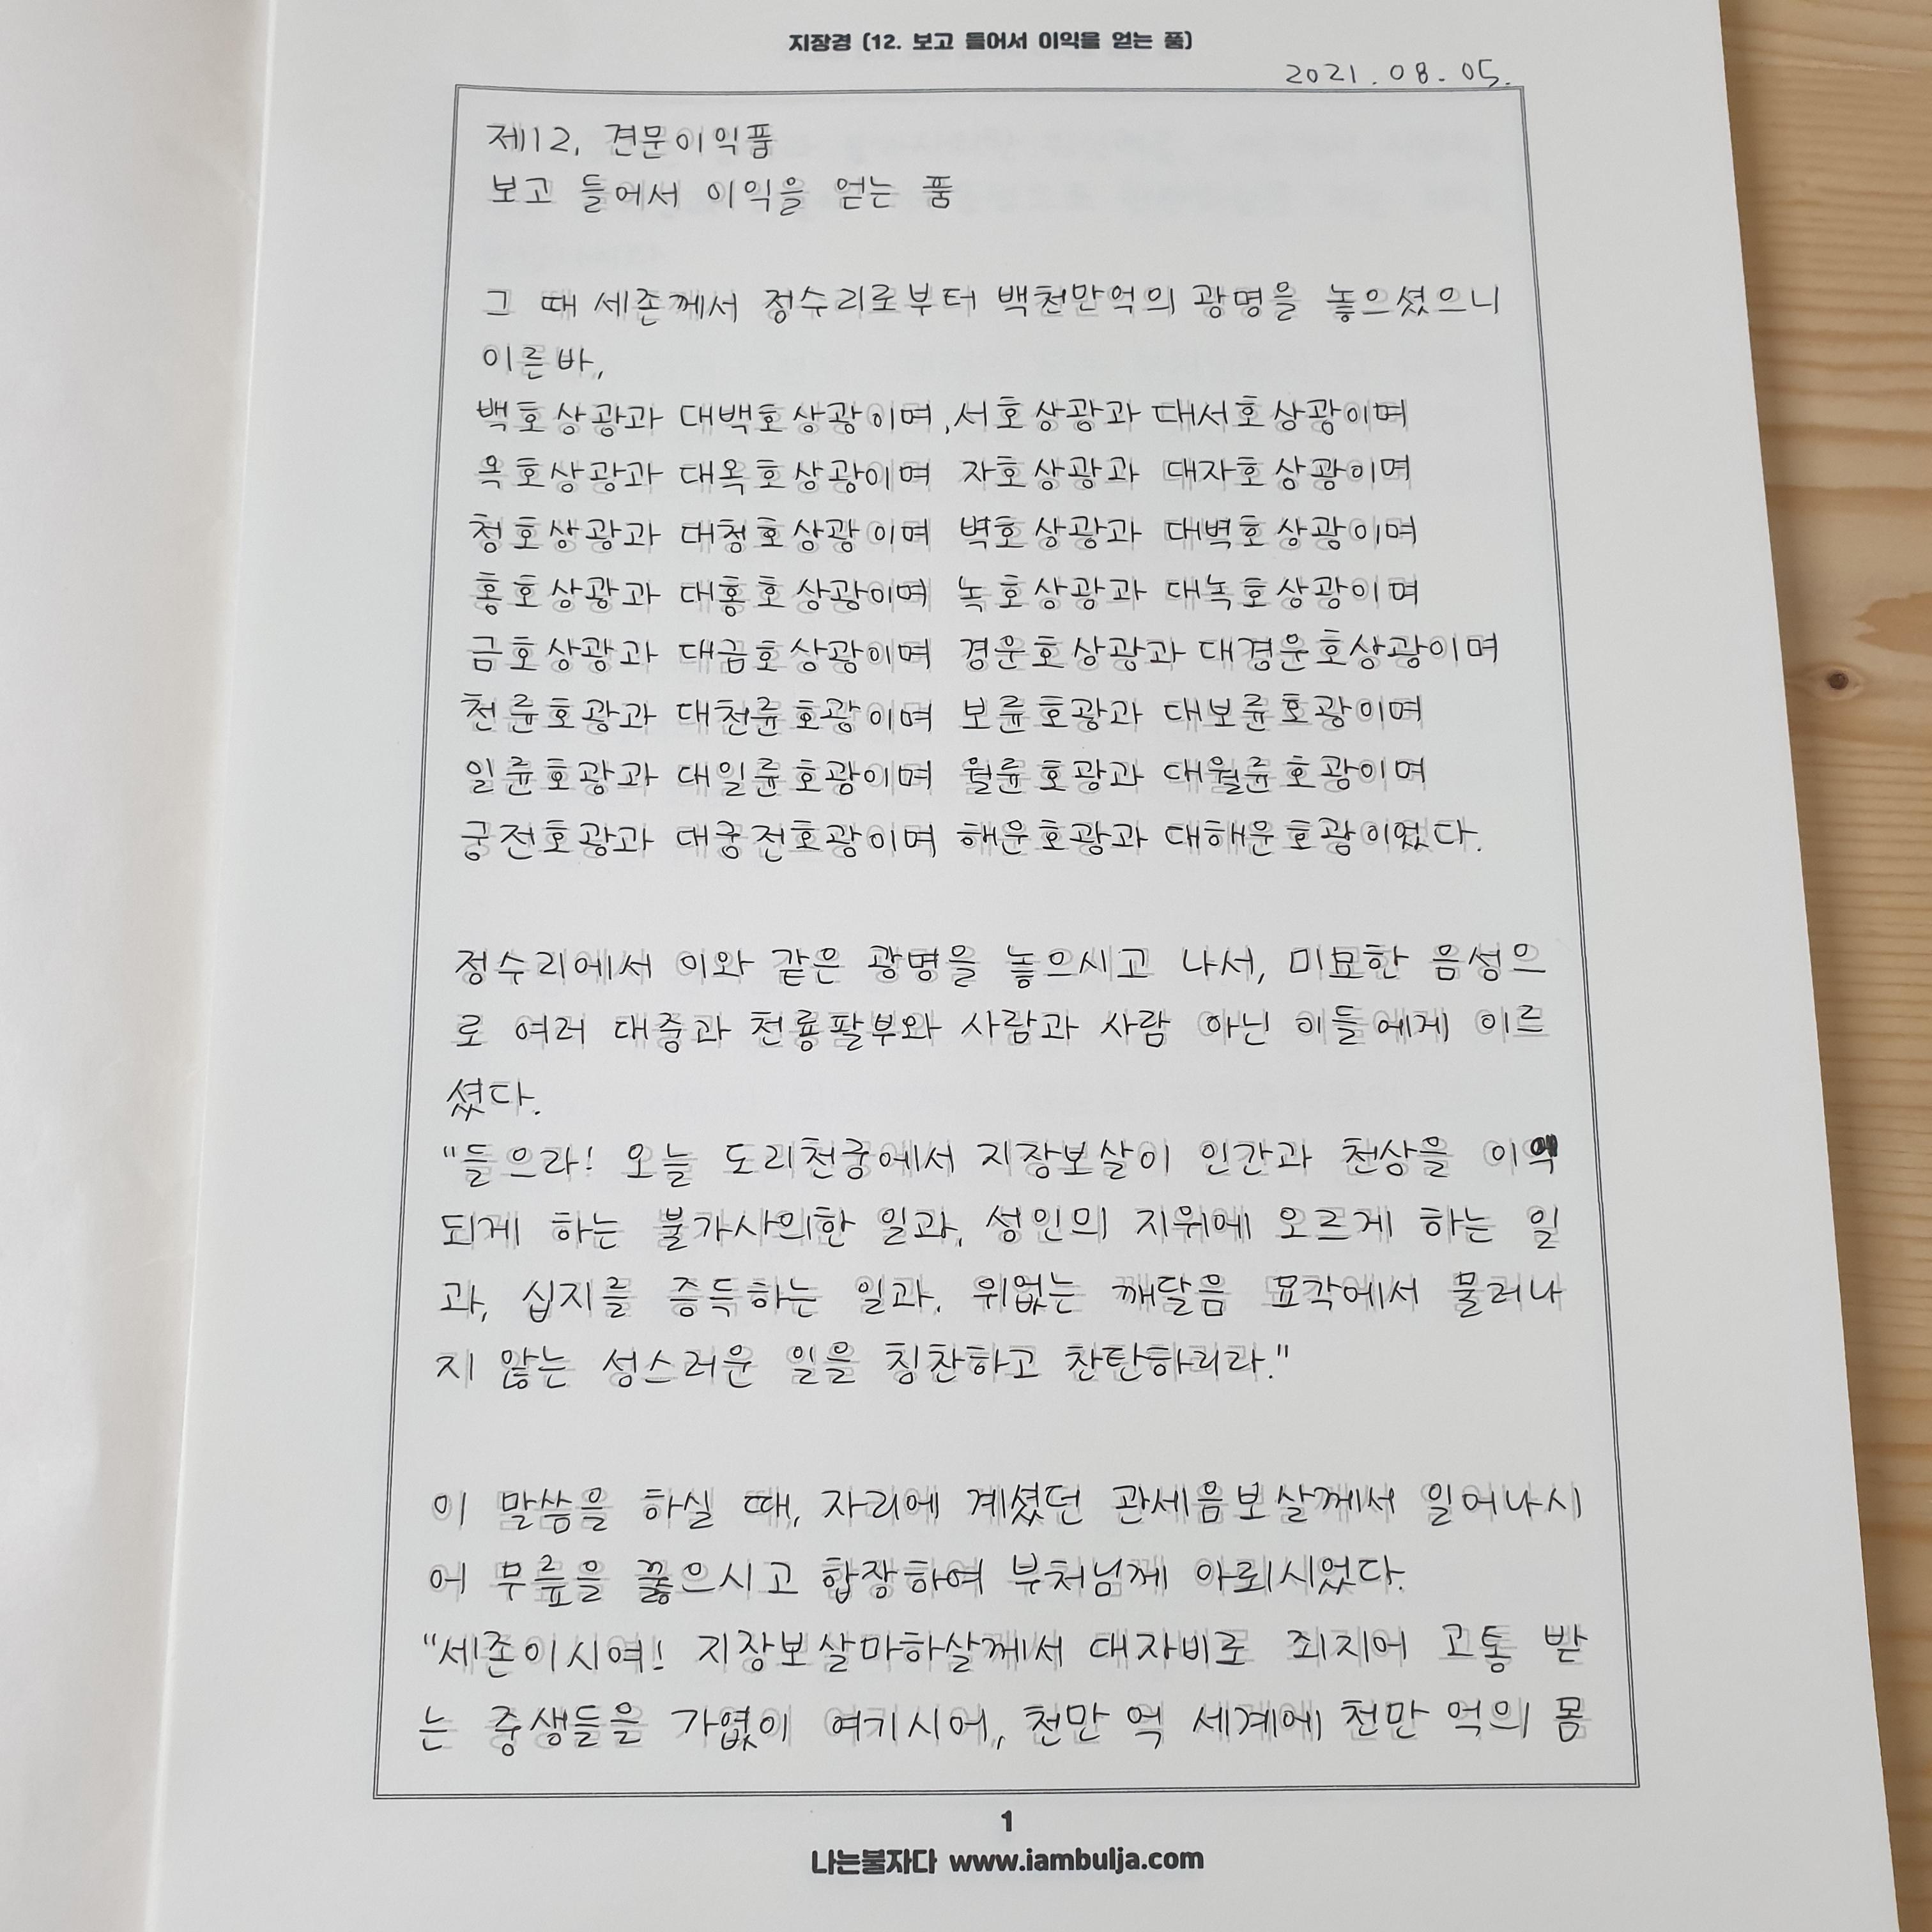 지장경 (12. 보고 들어서 이익을 얻는 품)
2021.08.05.
제12, 견문이익품
보고 들어서 이익을 얻는 품
그 때 세존께서 정수리로부터 백천만억의 광명을 놓으셨으니
이른바,
백호상광과 대백호상광이며,서호상광과 대서호상광이며
옥호상광과 대옥호상광이며 자호상광과 대자호상광이며
청호상광과 대청호상광이며 벽호상광과 대벽호상광이며
홍호상광과 대홍호상광이며 녹호상광과 대녹호상광이며
금호상광과 대금호상광이며 경운호상광과 대경운호상광이며
천륜호광과 대천륜호광이며 보륜호광과 대보륜호광이며
일륜호광과 대일륜호광이며 월륜호광과 대월륜호광이며
궁전호광과 대궁전호광이며 해운호광과 대해운호광이었다.
정수리에서 이와 같은 광명을 놓으시고 나서, 미묘한 음성으
로 여러 대중과 천룡팔부와 사람과 사람 아닌 이들에게 이르
셨다.
"들으라! 오늘 도리천궁에서 지장보살이 인간과 천상을 이익
되게 하는 불가사의한 일과, 성인의 지위에 오르게 하는 일
과, 십지를 증득하는 일과, 위없는 깨달음 묘각에서 물러나
지 않는 성스러운 일을 칭찬하고 찬탄하리라."
이 말씀을 하실 때, 자리에 계셨던 관세음보살께서 일어나시
어 무릎을 꿇으시고 합장하여 부처님께 아뢰시었다.
"세존이시여! 지장보살마하살께서 대자비로 죄지어 고통 받
는 중생들을 가엾이 여기시어, 천만 억 세계에 천만 억의 몸
1
나는불자다 www.iambulja.com